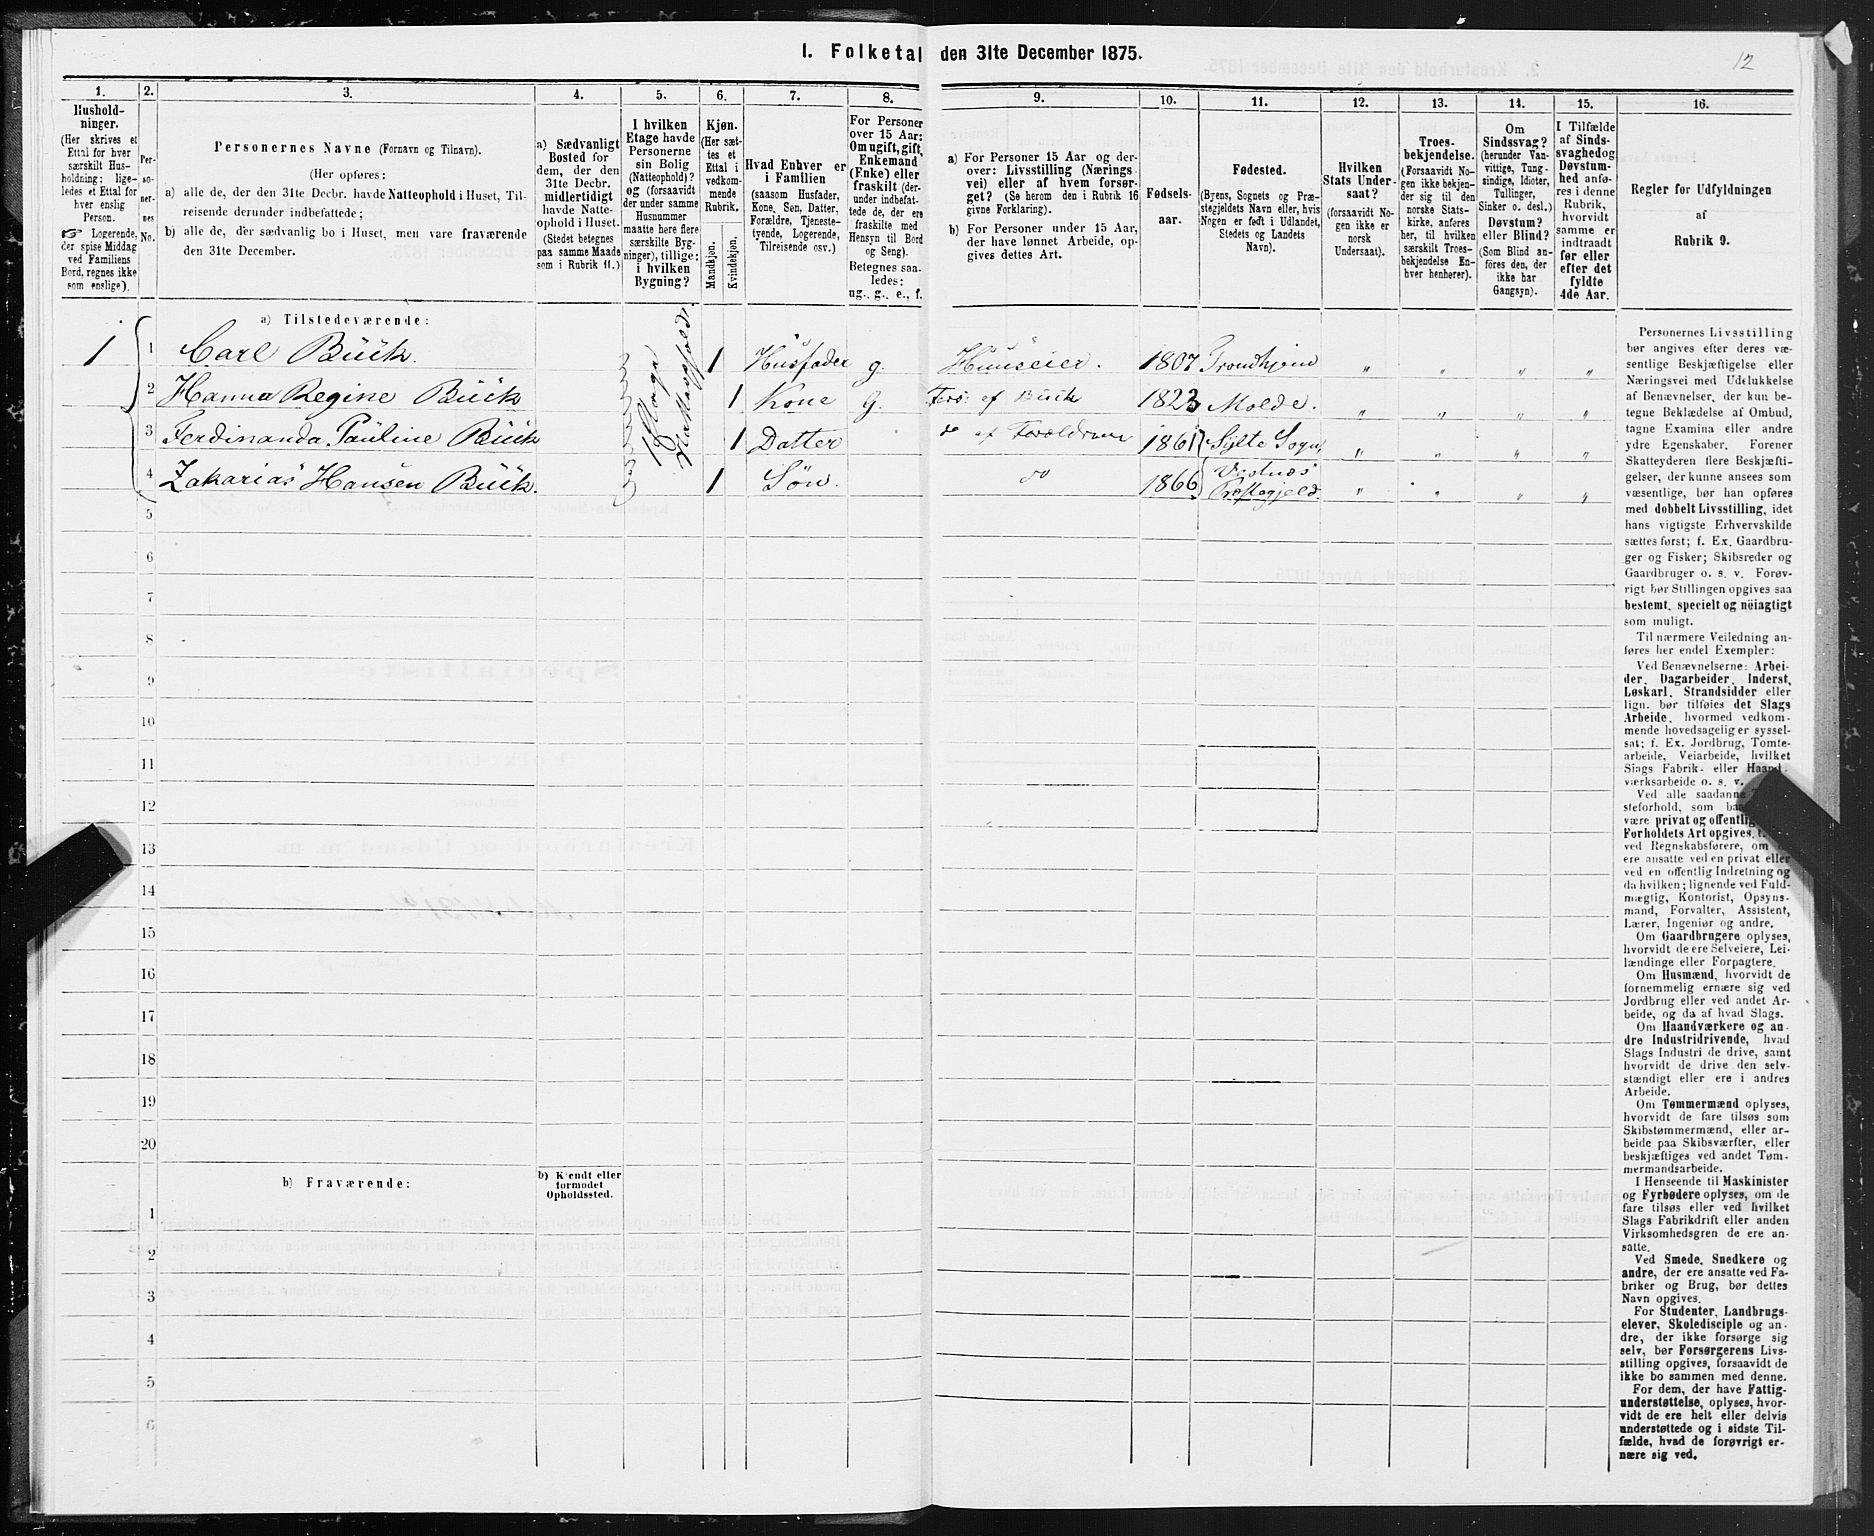 I. Folketal den 31te December 1875.
12
1.
Hushold-
ninger.
(Her skrives et
Ettal for hver
særskilt Hus-
holdning; lige-
ledes et Ettal for
hver enslig
Person.
☞ Logerende,
der spise Middag
ved Familiens
Bord, regnes ikke
som enslige).
2.
Per-
so-
ner-
nes
No.
3.
Personernes Navne (Fornavn og Tilnavn).
(Her opføres:
a) alle de, der den 31te Decbr. havde Natteophold i Huset, Til-
reisende derunder indbefattede;
b) alle de, der sædvanlig bo i Huset, men vare fraværende
den 31te December.
4.
a) Sædvanligt
Bosted for
dem, der den
31te Decbr.
midlertidigt
havde Natte-
ophold i Huset.
(Stedet betegnes
paa samme Maade
som i Rubrik 11.)
5.
I hvilken
Etage havde
Personerne
sin Bolig
(Natteophold)?
og (forsaavidt
der under samme
Husnummer
maatte høre flere
særskilte Byg-
ninger), tillige:
i hvilken
Bygning?
6.
Kjøn.
(Her sæt-
tes et
Ettal i
vedkom-
mende
Rubrik.
Mandkjøn.
Kvindekjøn.
7.
Hvad Enhver er
i Familien
(saasom Husfader,
Kone, Søn, Datter,
Forældre, Tjeneste-
tyende, Logerende,
Tilreisende osv.)
8.
For Personer
over 15 Aar:
Om ugift, gift,
Enkemand
(Enke) eller
fraskilt (der-
under indbefat-
tede de, der ere
fraskilte med
Hensyn til Bord
og Seng).
Betegnes saa-
ledes:
ug., g., e., f.
9.
a) For Personer 15 Aar og der-
over: Livsstilling (Nærings
vei) eller af hvem forsør-
get? (Se herom den i Rubrik 16
givne Forklaring).
b) For Personer under 15 Aar,
der have lønnet Arbeide, op-
gives dettes Art.
10.
Fødsels-
aar.
11.
Fødested.
(Byens, Sognets og Præ-
stegjeldets Navn eller, hvis
Nogen er født i Udlandet,
Stedets og Landets
Navn).
12.
Hvilken
Stats Under-
saat?
(forsaavidt No-
gen ikke er
norsk
Undersaat).
13.
Troes-
bekjendelse.
(Forsaavidt No-
gen ikke bekjen-
der sig til den
norske Stats-
kirke, anføres
her, til hvilken
særskilt Troes-
bekjendelse En-
hver henhører).
14.
Om
Sindssvag?
(herunder Van-
vittige, Tung-
sindige, Idioter,
Tullinger,
Sinker o. desl.)
Døvstum?
eller Blind?
(Som Blind an-
føres den, der
ikke har
Gangsyn).
15.
I Tilfælde
af Sinds-
svaghed og
Døvstum-
hed anfø-
res i denne
Rubrik,
hvorvidt
samme er
indtraadt
før eller
efter det
fyldte
4de Aar.
16.
Regler for Udfyldningen
af
Rubrik 9.
a) Tilstedeværende:
1 1 Carl Büük. 1 Husfader g. Huuseier. 1807 Trondhjem „ „ „ „
2 Hanna Regine Büük 1 Kone G. Fors: af Büük 1823 Molde. „ „ „ „
3 Ferdinanda Pauline Büük 1 Datter do af Forældrene 1861 Sylte Sogn „ „ „ „
4 Zakarias Hansen Büük. 1 Søn. do 1866 Præstegjeld. „ „ „ „
5
6
7
8
9
10
11
12
13
14
15
16
17
18
19
20
b) Fraværende:
b) Kjendt eller
formodet
Opholdssted.
1
2
3
4
5
6
Personernes Livsstilling
bør angives efter deres væ-
sentlige Beskjæftigelse eller
Næringsvei med Udelukkelse
af Benævnelser, der kun be-
tegne Beklædelse af Ombud,
tagne Examina eller andre
ydre Egenskaber. Forener
Skatteyderen flere Beskjæfti-
gelser, der kunne ansees som
væsentlige, bør han opføres
med dobbelt Livsstilling, idet
hans vigtigste Erhvervskilde
sættes først; f. Ex. Gaardbru-
ger og Fisker; Skibsreder og
Gaardbruger o. s. v. Forøv-
rigt bør Stillingen opgives saa
bestemt, specielt og nøiagtigt
som muligt.
Til nærmere Veiledning an-
føres her endel Exempler:
Ved Benævnelserne: Arbei-
der, Dagarbeider, Inderst,
Løskarl, Strandsidder eller
lign. bør tilføies det Slags
Arbeide, hvormed vedkom-
mende hovedsagelig er syssel-
sat; f. Ex. Jordbrug, Tomte-
arbeide, Veiarbeide, hvilket
Slags Fabrik- eller Haand-
værksarbeide o. s. v.
Ved alle saadanne
steforhold, som
være privat og offentlig
Forholdets Art opgives,
ved Regnskabsførere, om
ere ansatte ved en privat eller
ved en offentlig Indretning og
da hvilken; lignende ved Fuld-
mægtig, Kontorist, Opsyns-
mand, Forvalter, Assistent,
Lærer, Ingeniør og andre.
Om Gaardbrugere oplyses,
hvorvidt de ere Selveiere, Lei-
lændinge eller Forpagtere.
Om Husmænd, hvorvidt de
fornemmelig ernære sig ved
Jordbrug eller ved andet Ar-
beide, og da af hvad Slags.
Om Haandværkere og an-
dre Industridrivende, hvad
Slags Industri de drive, samt
hvorvidt de drive den selv-
stændigt eller ere i andres
Arbeide.
Om Tømmermænd oplyses,
hvorvidt de fare tilsøs som
Skibstømmermænd, eller ar-
beide paa Skibsværfter, eller
beskjæftiges ved andet Tøm-
mermandsarbeide.
I Henseende til Maskinister
og Fyrbødere oplyses, om de
fare tilsøs eller ved hvilket
Slags Fabrikdrift eller anden
Virksomhedsgren de ere an-
satte.
Ved Smede, Snedkere og
andre, der ere ansatte ved Fa-
briker og Brug, bør dettes
Navn opgives.
For Studenter, Landbrugs-
elever, Skoledisciple og an-
dre, der ikke forsørge sig
selv, bør Forsørgerens Livs-
stilling opgives, forsaavidt de
ikke bo sammen med denne.
For dem, der have Fattig-
understøttelse, oplyses, hvor-
vidt de ere helt eller delvis
understøttede og i sidste Til-
fælde, hvad de forøvrigt er-
nære sig ved.